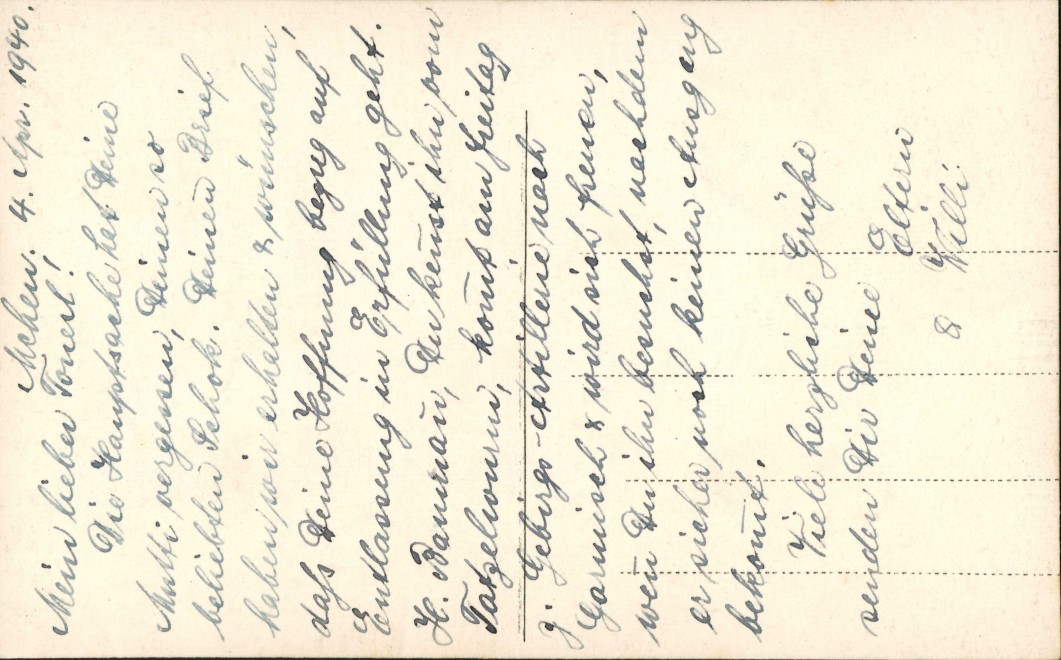 Mchn. 4. Apr. 1940.
Mein lieber Tonerl!
Die Hauptsache hat Deine
Mutti vergessen, Deinen so
beliebten Schok. Deinen Brief
haben wir erhalten & wünschen,
dass Deine Hoffnung bezug auf
Entlassung in Erfüllung geht.
H. Baumañ, Du keñst ihn vom
Tatzelwurm, kom̄t am Freitag
z. Gebirgs-Artillerie nach
Garmisch & wird sich freuen,
weñ Du ihn besuchst, nachdem
er sicher noch keinen Ausgang
bekom̄t.
Viele herzliche Grüße
senden Dir Deine Eltern
& Willi.